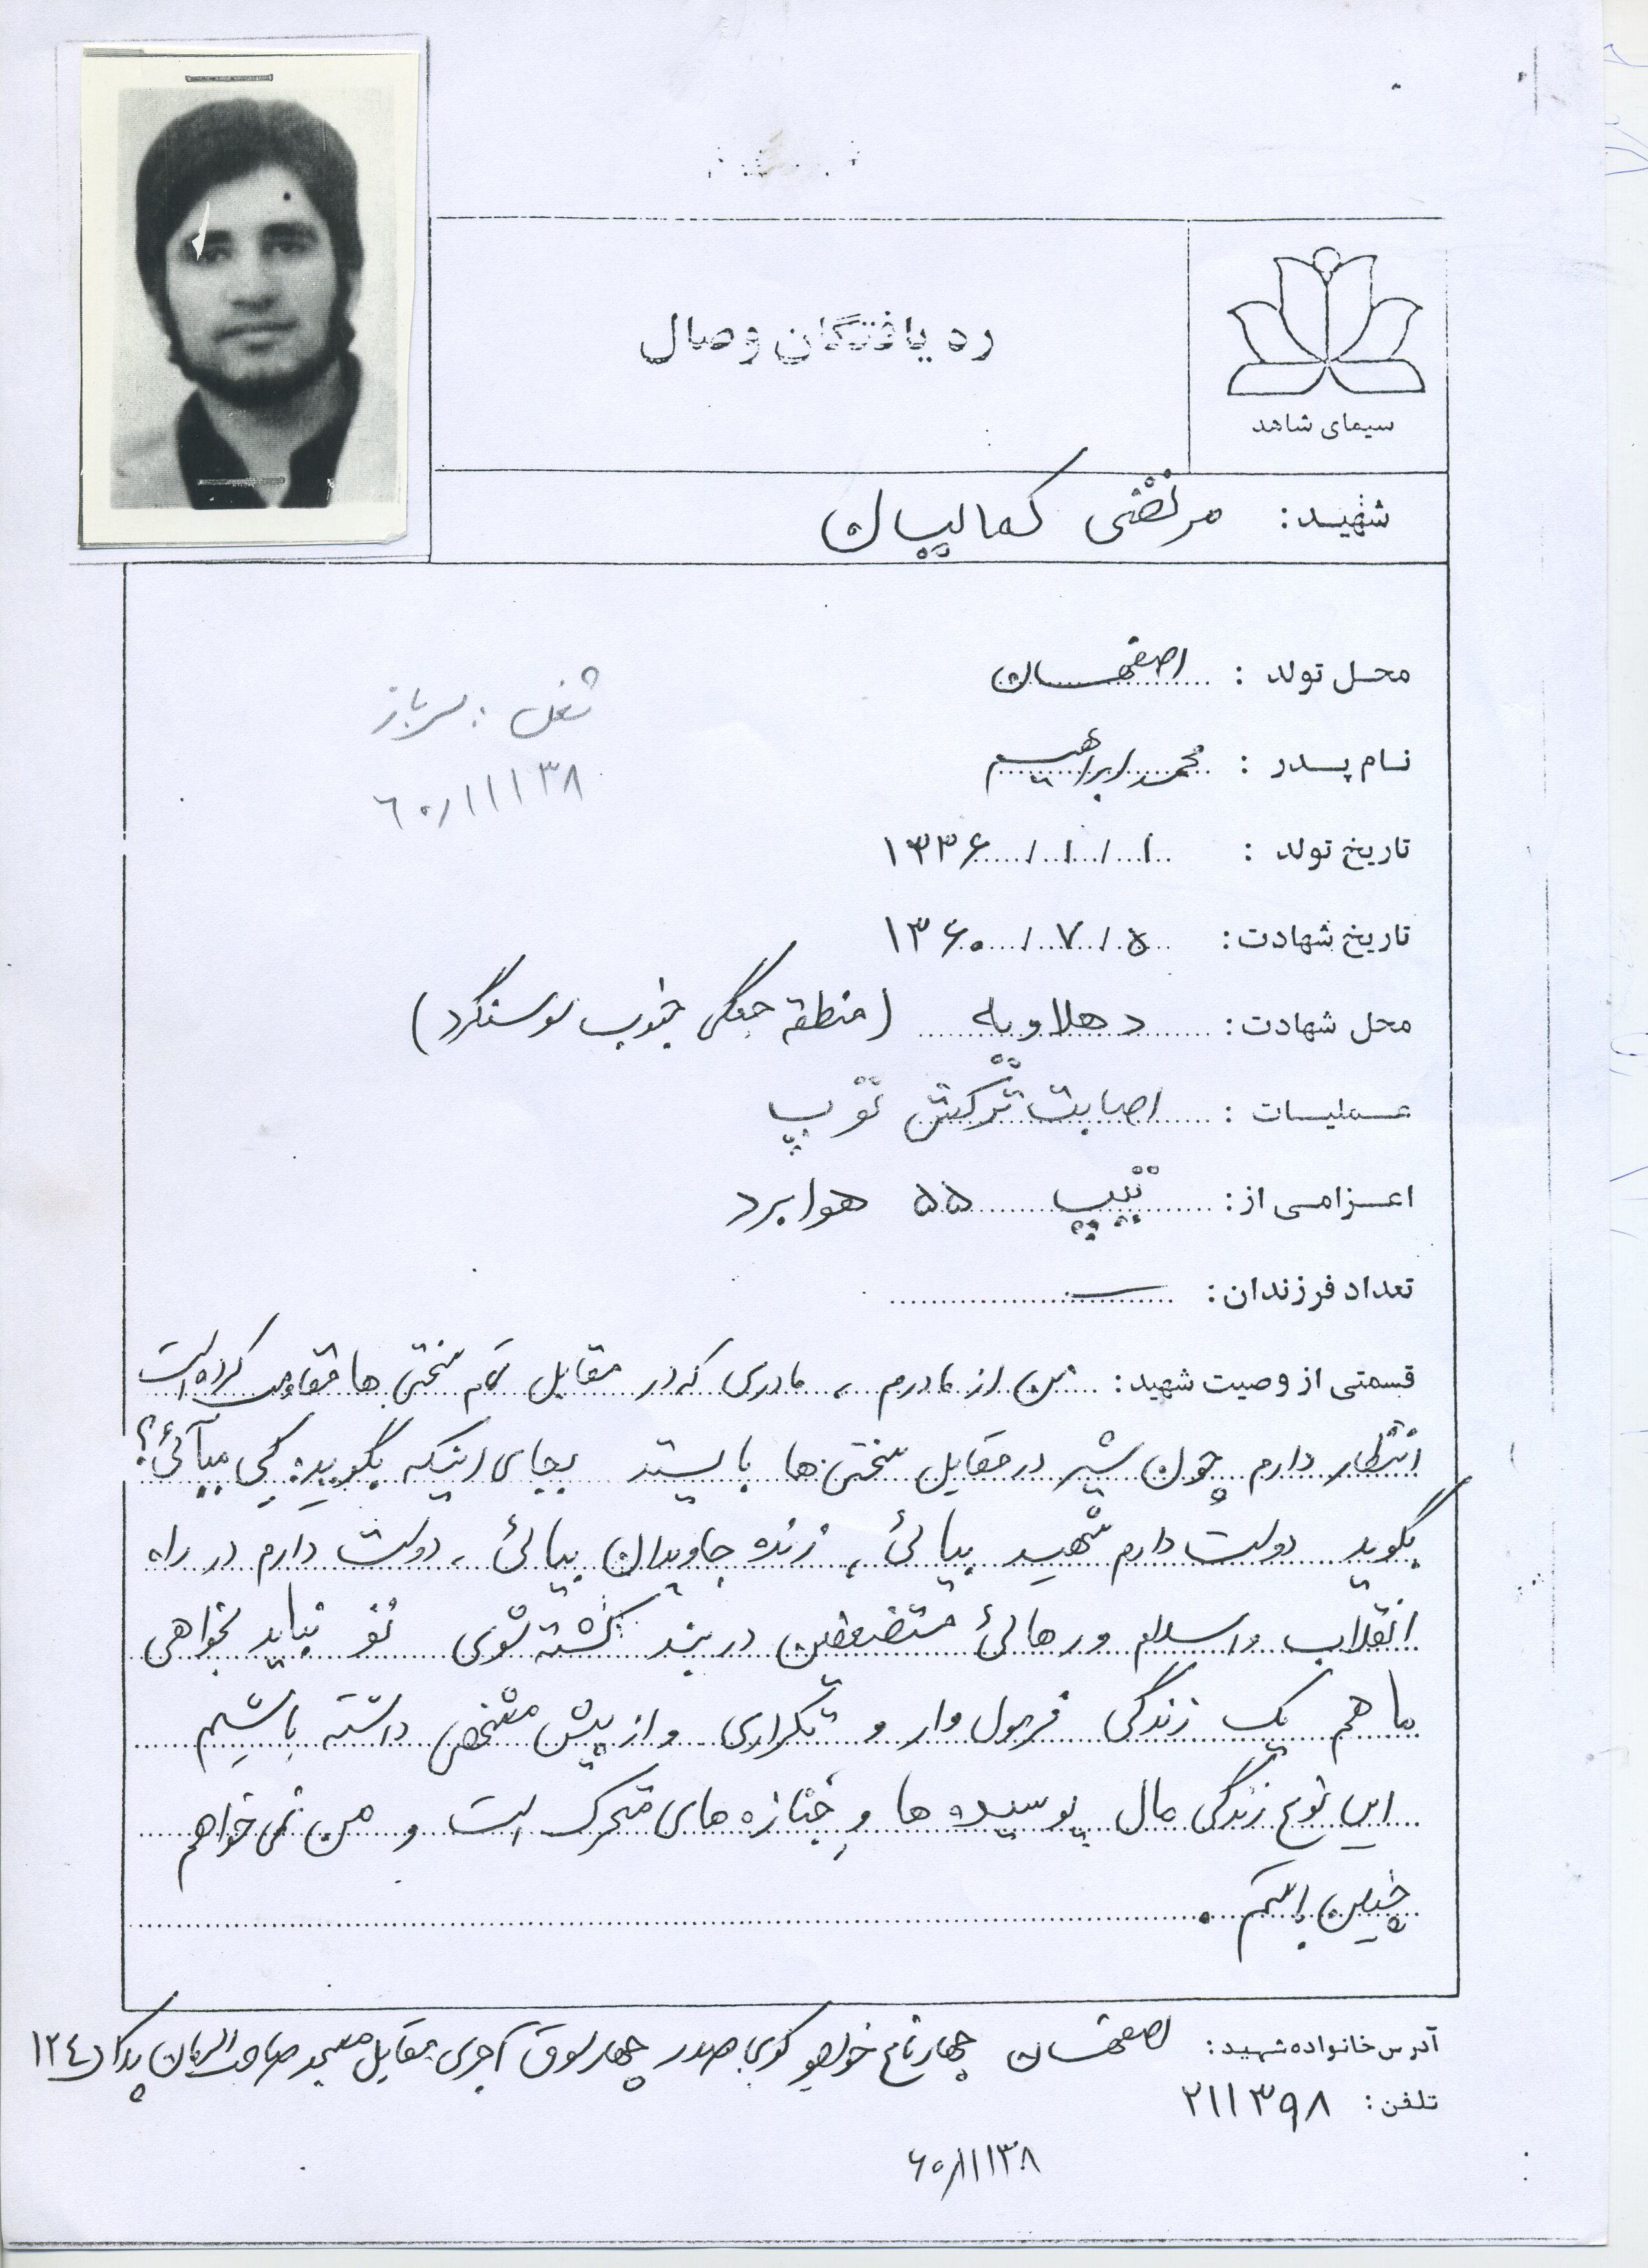 ره یافتگان وصال
سیمای شاهد
شهید: مرتضی کمالیان
محل تولد : اصفهان
شغل : سرباز
نام پدر : محمد ابراهیم
۶۰/۱۱۱۳۸
تاریخ تولد : ۱ / ۱ / ۱۳۳۶
تاریخ شهادت: ۵ / ۷ / ۱۳۶۰
محل شهادت: دهلاویه (منطقه جنگی جنوب سوسنگرد)
عملیات : اصابت ترکش توپ
اعزامی از: تیپ ۵۵ هوابرد
تعداد فرزندان: ــ
قسمتی از وصیت شهید: من از مادرم ، مادری که در مقابل تمام سختی ها مقاومت کرده است
انتظار دارم چون شیر در مقابل سختی ها بایستد بجای اینکه بگوید: کی میآئی؟
بگوید دوست دارم شهید بیائی ، زنده جاویدان بیائی ، دوست دارم در راه
انقلاب و اسلام و رهائی مستضعفین در بند کشته شوی تو نباید بخواهی
ما هم یک زندگی فرمول وار و تکراری و از پیش مشخص داشته باشیم
این نوع زندگی مال پوسیده ها و جنازه های متحرک است و من نمی خواهم
چنین باشم .
آدرس خانواده شهید: اصفهان چهارباغ خواجو کوی صدر چهارسوق آجری مقابل مسجد صاحب الزمان پلاک ۱۲۴
تلفن: ۲۱۱۳۹۸
۶۰/۱۱۱۳۸